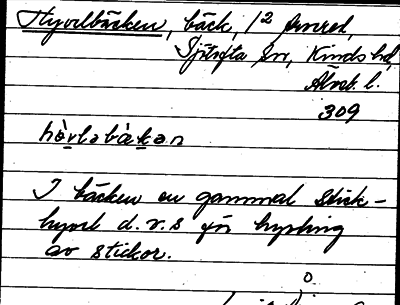 Hyvelbäcken, bäck, 1²
Sjötofta sn, Kinds hd,
Älvsb. l.
309
hø̀vləbàkən
I bäcken en gammal stick-
hyvel d.v.s för hyvling
av stickor.